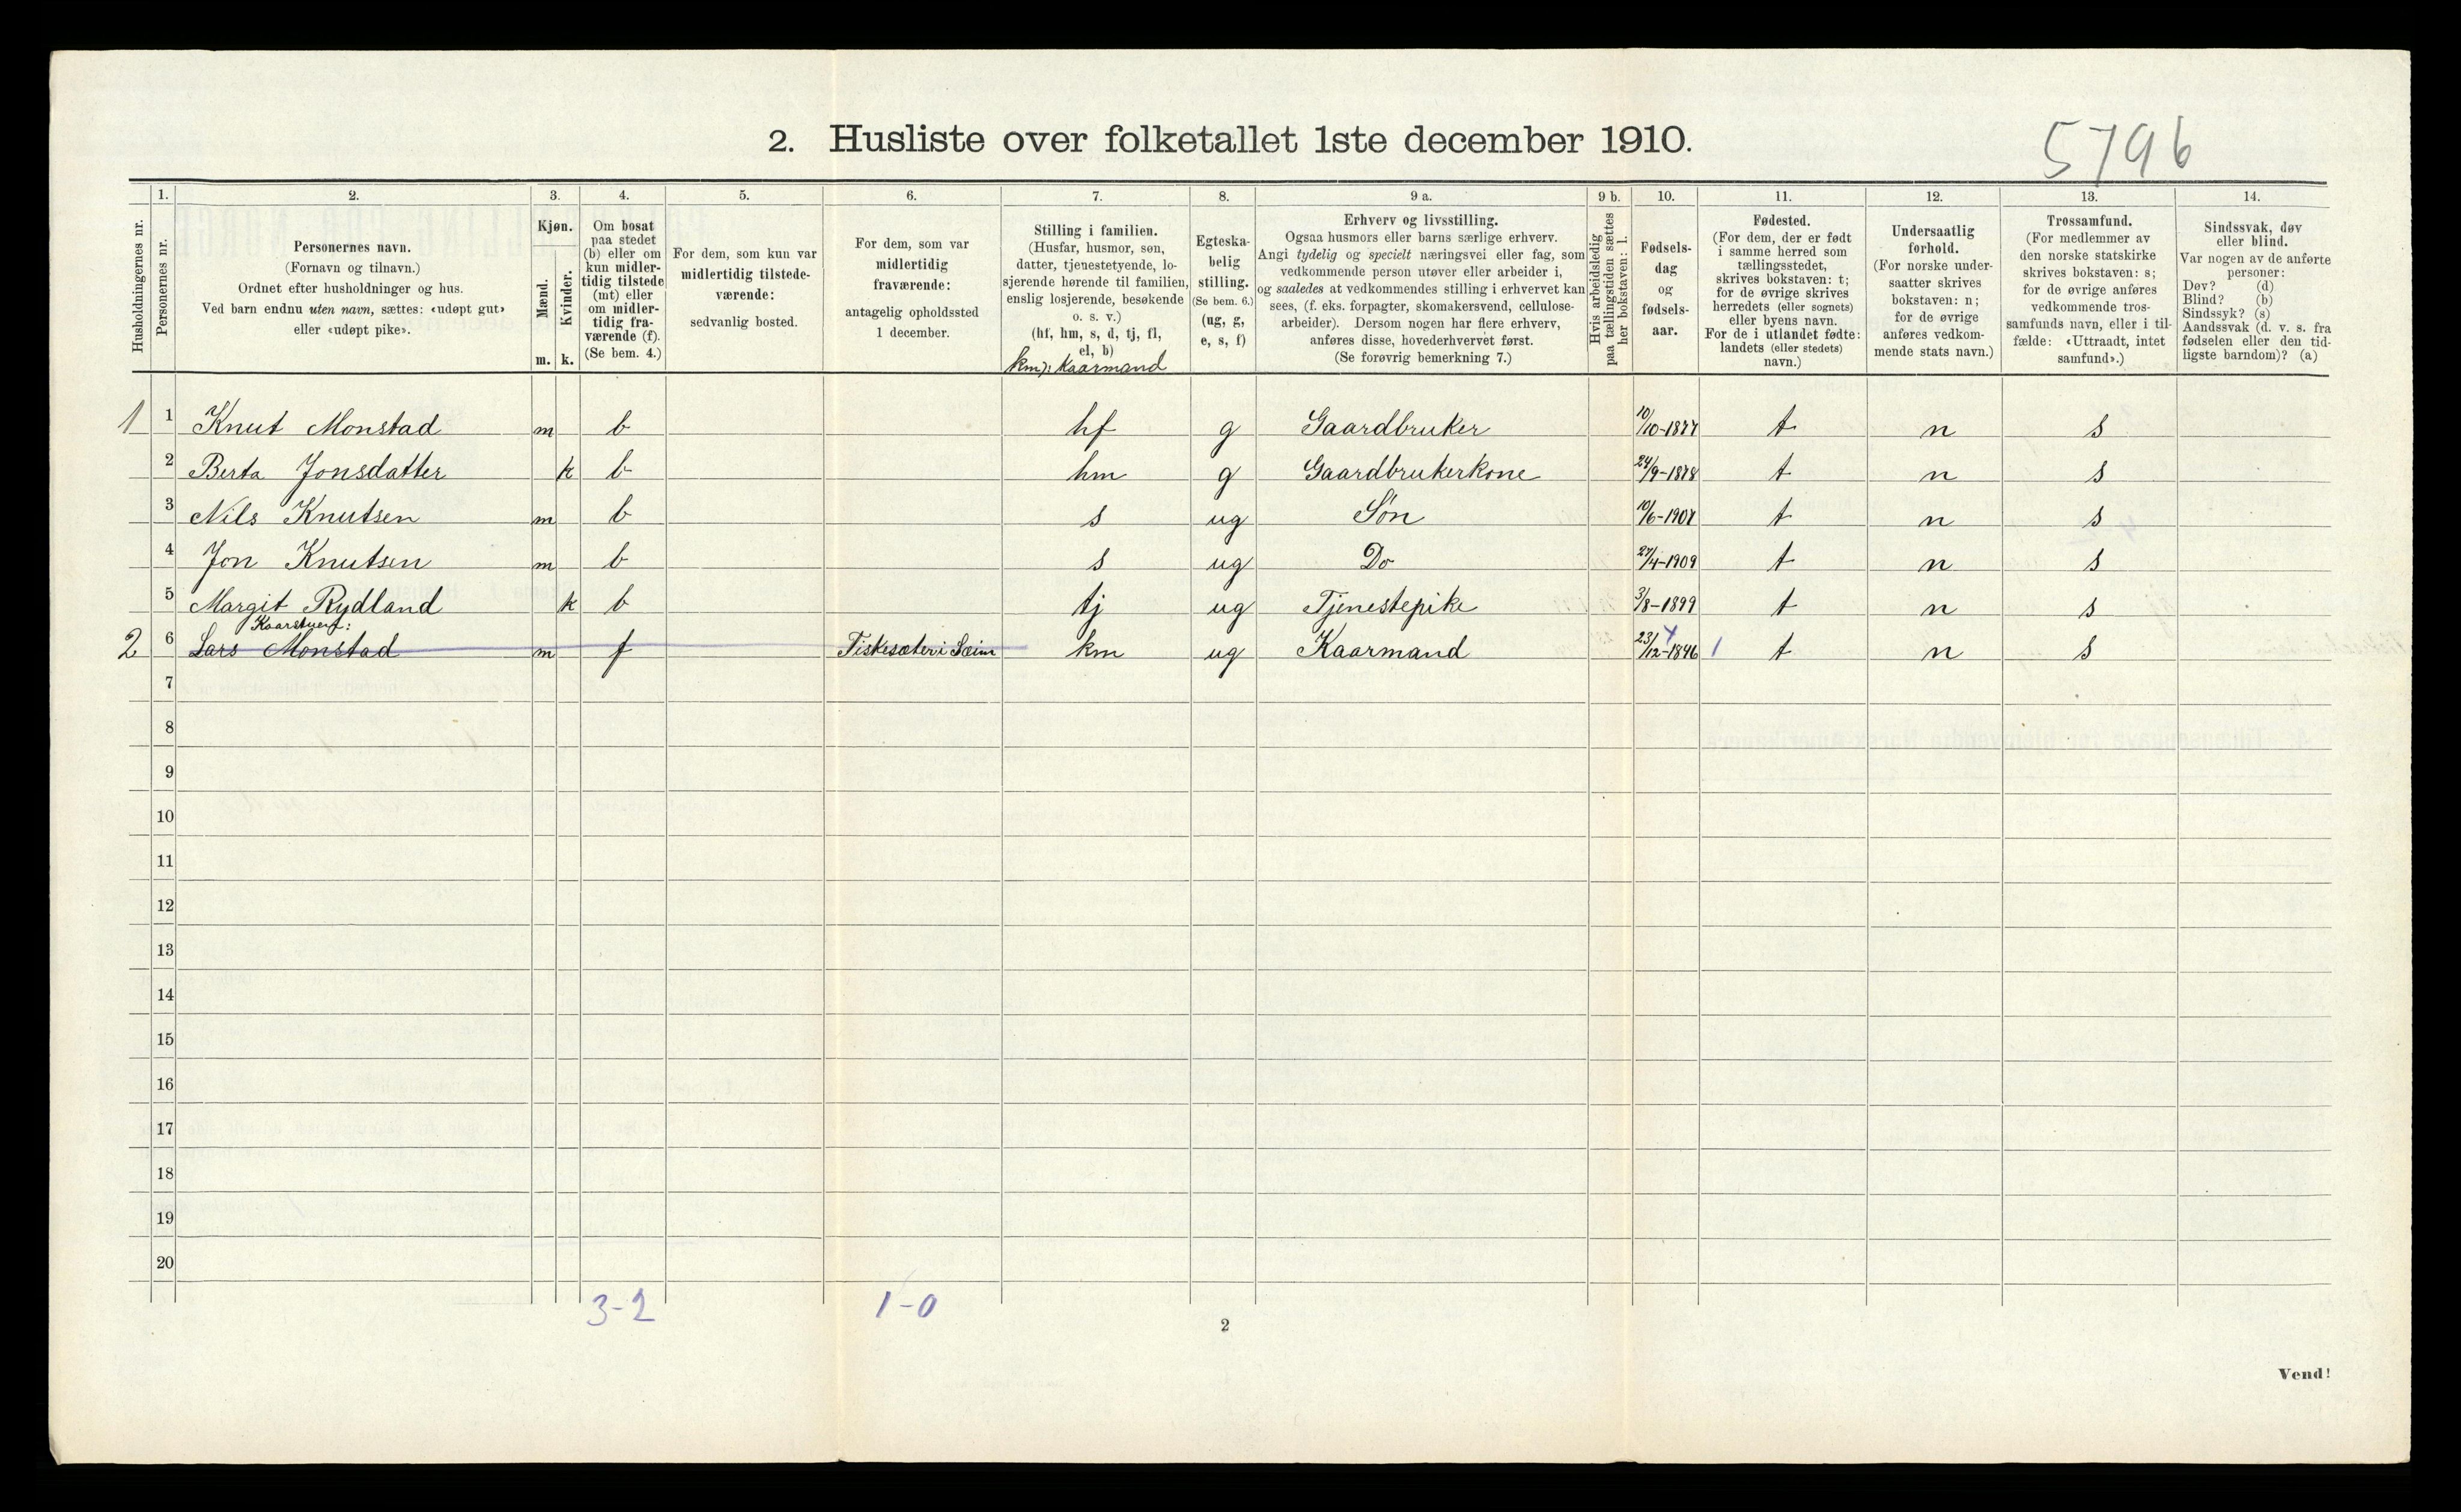 2. Husliste over folketallet 1ste december 1910.
5796
Husholdningernes nr.
1.
Personernes nr.
2.
Personernes navn.
(Fornavn og tilnavn.)
Ordnet efter husholdninger og hus.
Ved barn endnu uten navn, sættes: «udøpt gut»
eller «udøpt pike».
3.
Kjøn.
Mænd.
Kvinder.
m. k.
4.
Om bosat
paa stedet
(b) eller om
kun midler-
tidig tilstede
(mt) eller
om midler-
tidig fra-
værende (f).
(Se bem. 4.)
5.
For dem, som kun var
midlertidig tilstede-
værende:
sedvanlig bosted.
6.
For dem, som var
midlertidig
fraværende:
antagelig opholdssted
1 december.
7.
Stilling i familien.
(Husfar, husmor, søn,
datter, tjenestetyende, lo-
sjerende hørende til familien,
enslig losjerende, besøkende
o. s. v.)
(hf, hm, s, d, tj, fl,
el, b)
km): Kaarmand
8.
Egteska-
belig
stilling.
(Se bem. 6.)
(ug, g,
e, s, f)
9 a.
Erhverv og livsstilling.
Ogsaa husmors eller barns særlige erhverv.
Angi tydelig og specielt næringsvei eller fag, som
vedkommende person utøver eller arbeider i,
og saaledes at vedkommendes stilling i erhvervet kan
sees, (f. eks. forpagter, skomakersvend, cellulose-
arbeider). Dersom nogen har flere erhverv,
anføres disse, hovederhvervet først.
(Se forøvrig bemerkning 7.)
9 b.
Hvis arbeidsledig
paa tællingstiden sættes
her bokstaven: l.
10.
Fødsels-
dag
og
fødsels-
aar.
11.
Fødested.
(For dem, der er født
i samme herred som
tællingsstedet,
skrives bokstaven: t;
for de øvrige skrives
herredets (eller sognets)
eller byens navn.
For de i utlandet fødte:
landets (eller stedets)
navn.)
12.
Undersaatlig
forhold.
(For norske under-
saatter skrives
bokstaven: n;
for de øvrige
anføres vedkom-
mende stats navn.)
13.
Trossamfund.
(For medlemmer av
den norske statskirke
skrives bokstaven: s;
for de øvrige anføres
vedkommende tros-
samfunds navn, eller i til-
fælde: «Uttraadt, intet
samfund».)
14.
Sindssvak, døv
eller blind.
Var nogen av de anførte
personer:
Døv? (d)
Blind? (b)
Sindssyk? (s)
Aandssvak (d. v. s. fra
fødselen eller den tid-
ligste barndom)? (a)
1 1 Knut Monstad m b hf g Gaardbruker 10/10-1877 t n s
2 Berta Jonsdatter k b hm g Gaardbrukerkone 24/9-1878 t n s
3 Nils Knutsen m b s ug Søn 10/6-1907 t n s
4 Jon Knutsen m b s ug Do 27/4-1909 t n s
5 Margit Rydland k b tj ug Tjenestepike 3/8-1899 t n s
2 6 Lars Monstad m f Fiskesæter i Seim km ug Kaarmand 23/12-1846 1 t n s
7
8
9
10
11
12
13
14
15
16
17
18
19
20
3-2 1-0
2
Vend!